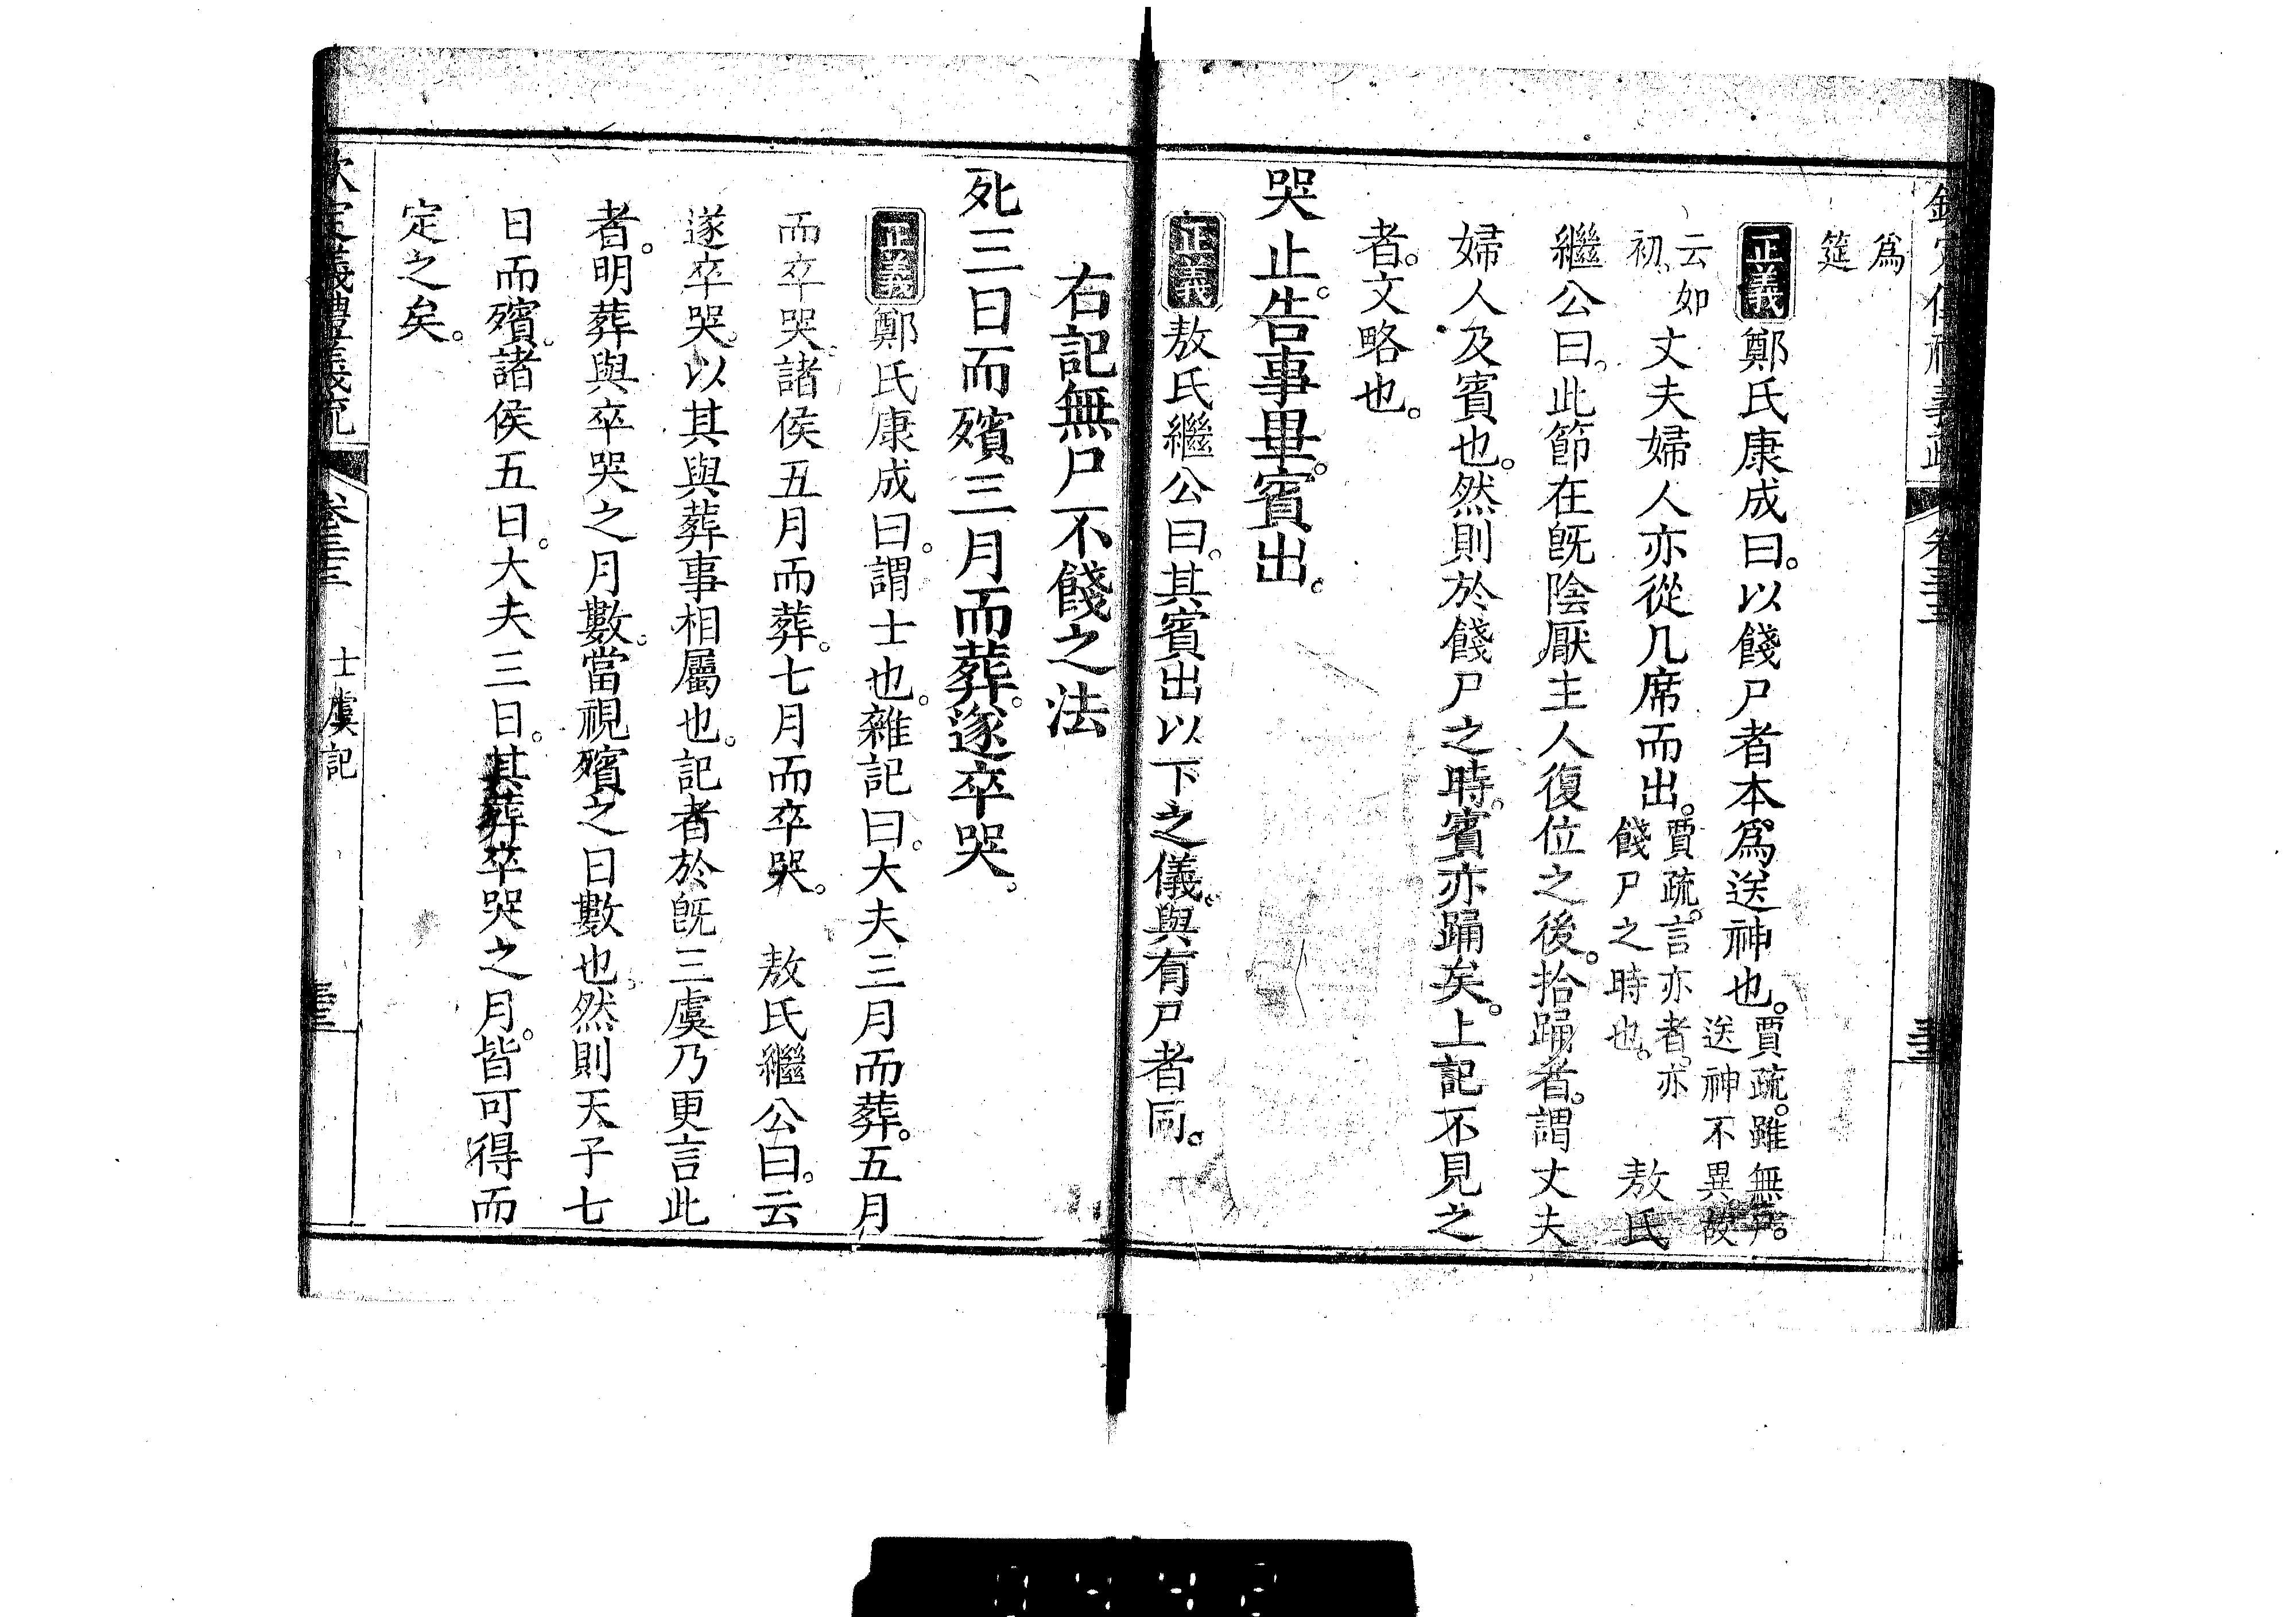 爲
筵
正義鄭氏康成曰。以餞尸者本爲送神也。賈疏。雖無尸。送神不異。故
云如初。丈夫婦人亦從几席而出。賈疏。言亦者。亦餞尸之時也。敖氏
繼公曰。此節在旣陰厭。主人復位之後。拾踊者。謂丈夫
婦人及賓也。然則於餞尸之時。賓亦踊矣。上記不見之
者。文略也。
哭止。告事畢。賓出。
正義敖氏繼公曰。其賓出以下之儀。與有尸者同。
右記無尸不餞之法
死三日而殯。三月而葬。遂卒哭。
正義鄭氏康成曰。謂士也。雜記曰。大夫三月而葬。五月
而卒哭。諸侯五月而葬。七月而卒哭。敖氏繼公曰。云
遂卒哭。以其與葬事相屬也。記者於旣三虞乃更言此
者。明葬與卒哭之月數。當視殯之日數也。然則天子七
日而殯。諸侯五日。大夫三日。其葬卒哭之月。皆可得而
定之矣。
欽定義禮義疏 卷三十三 士虞記